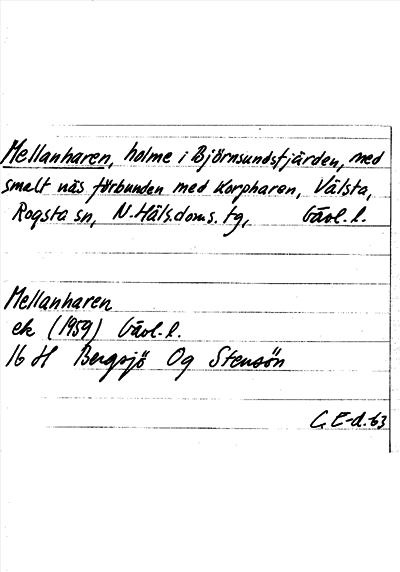 Mellanharen, holme i Björnsundsfjärden, med
smalt näs förbunden med Korpharen, Välsta,
Rogsta sn, N. Häls. doms. tg, Gävl. l.
Mellanharen
ek (1959) Gävl. l.
16 H Bergsjö Og Stensön
C. E-d. 63